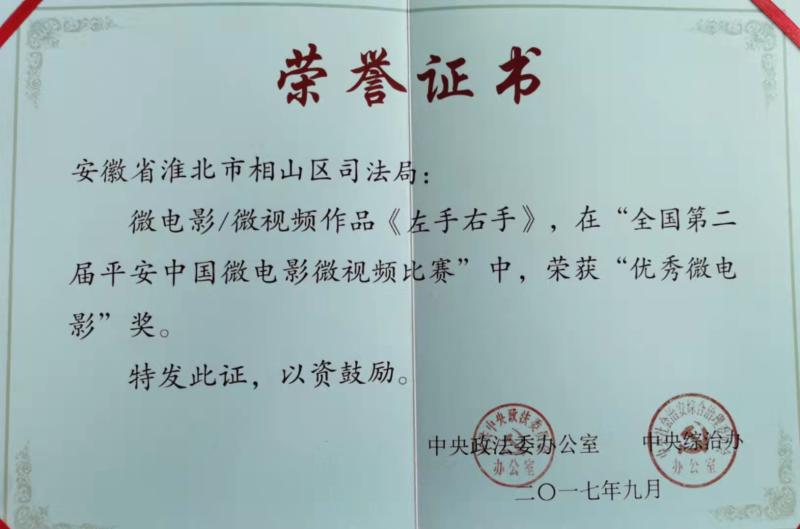 荣誉证书
安徽省淮北市相山区司法局：
微电影/微视频作品《左手右手》，在“全国第二
届平安中国微电影微视频比赛”中，荣获“优秀微电
影”奖。
特发此证，以资鼓励。
中央政法委办公室 中央综治办
办公室 办公室
二〇一七年九月